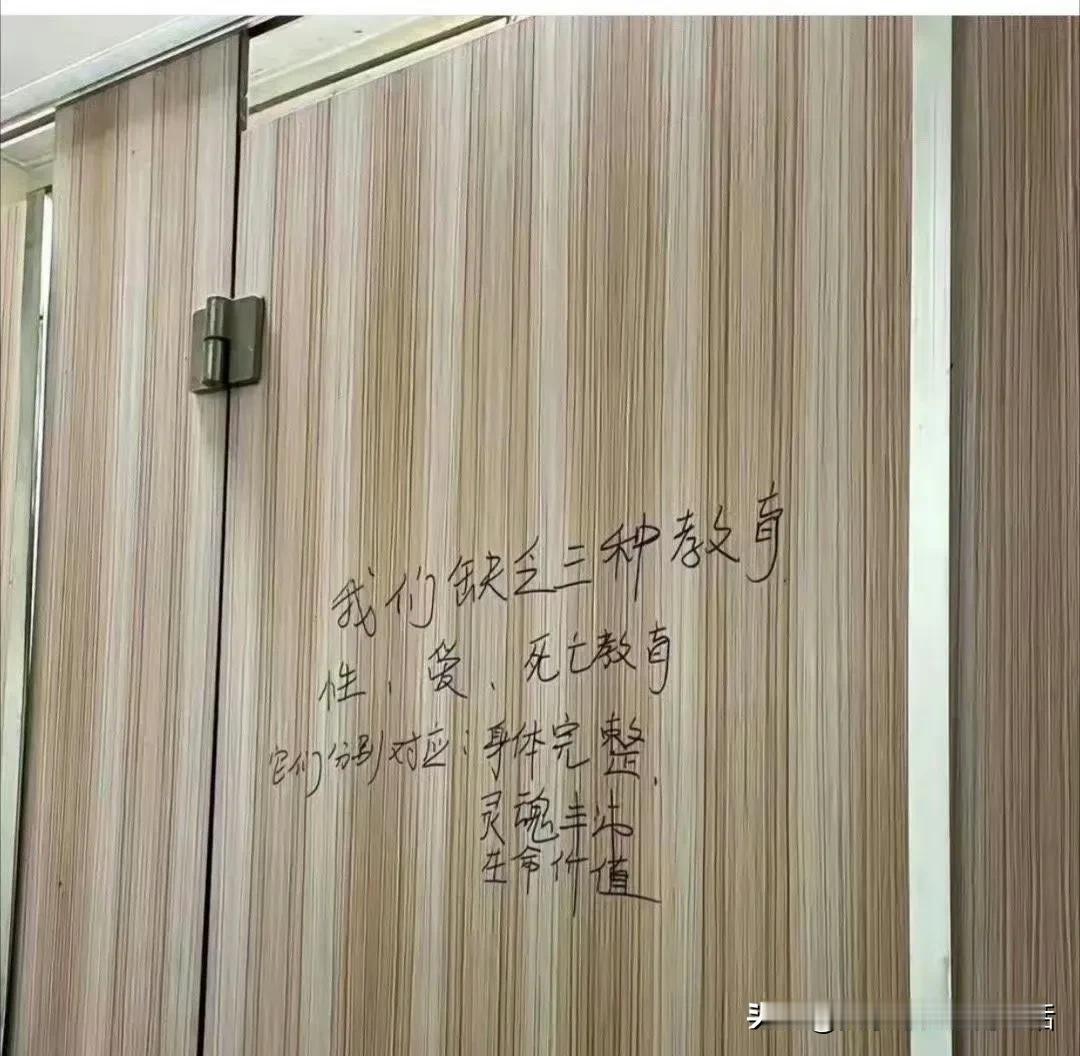 我们缺乏三种教育.
性、爱、死亡教育
它们分别对应:身体完整.
灵魂丰沛
生命价值
头